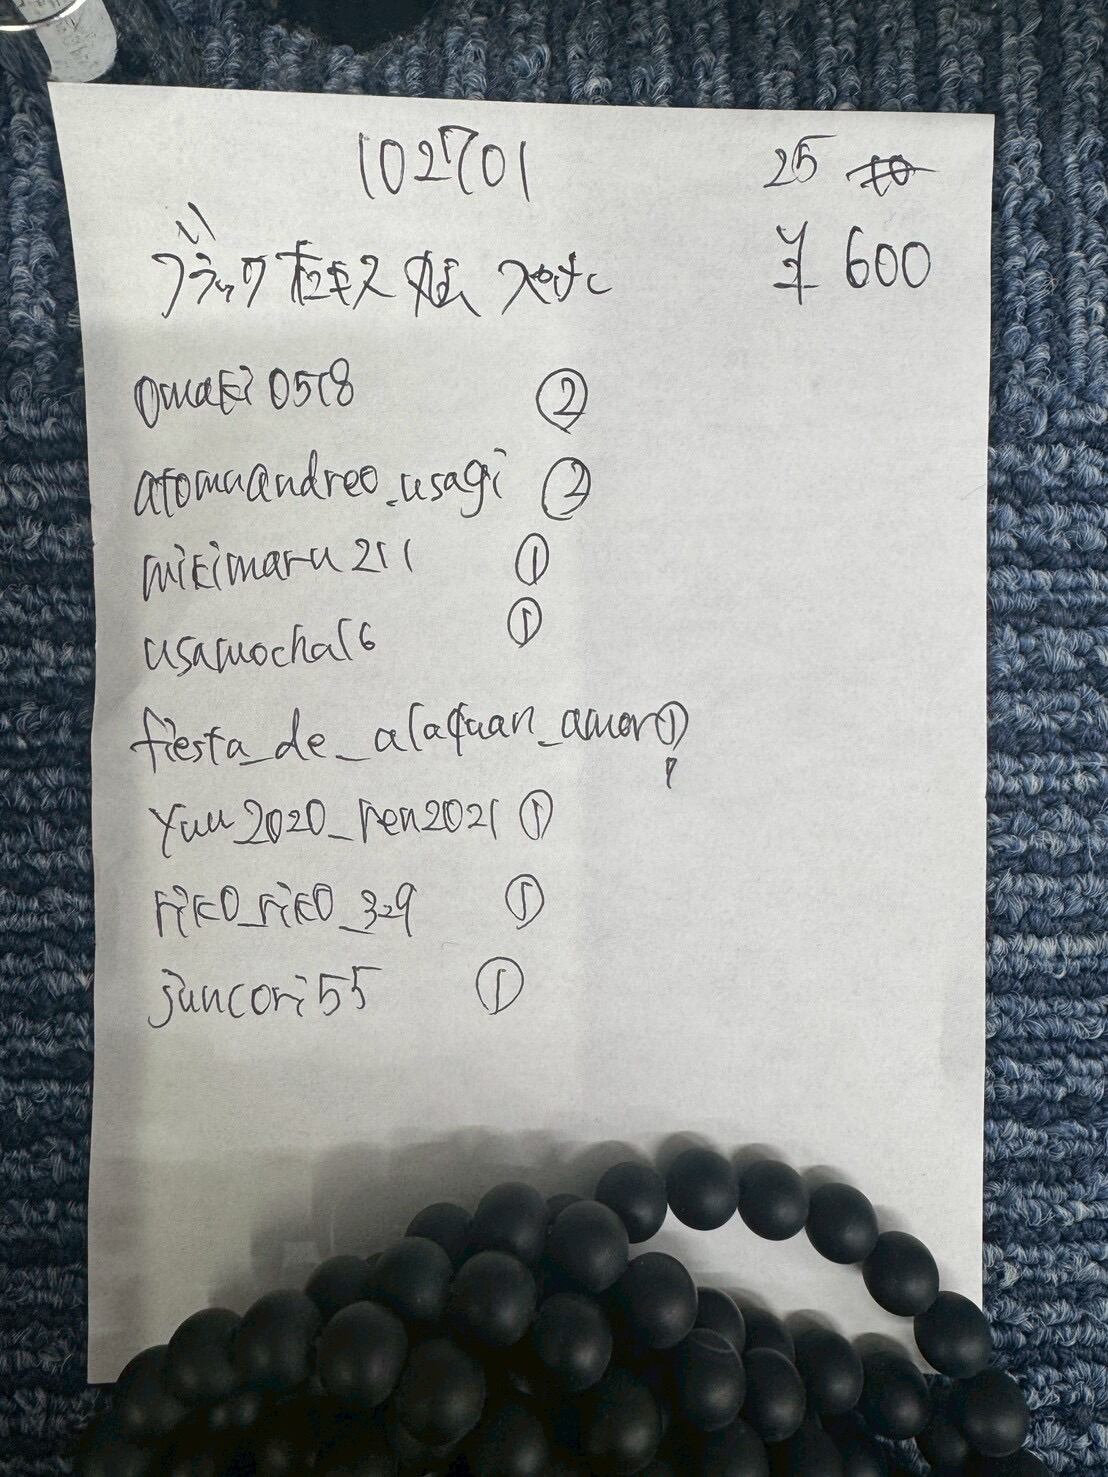 102701 25
ブラックオニキス ¥600
omaki0518 ②
atomuandreo_usagi ②
mikimaru211 ①
usamocha16 ①
fiesta_de_alaquan_amor ①
yuu2020_ren2021 ①
riko_riko_329 ①
juncori55 ①